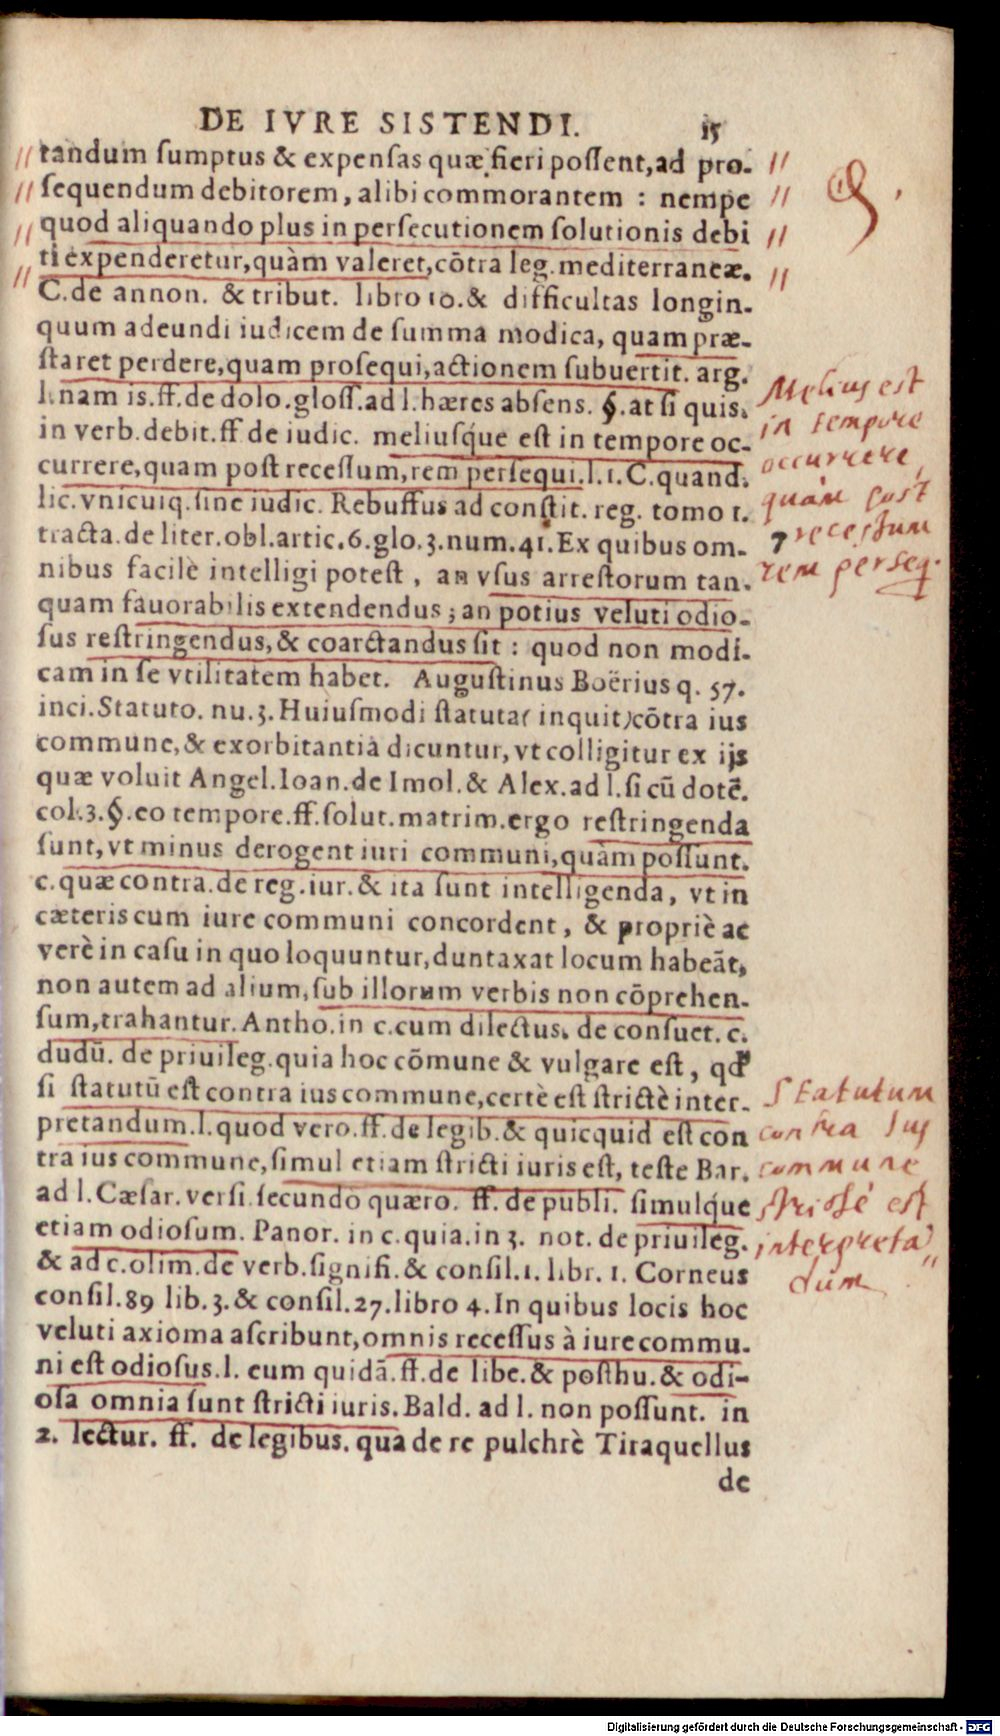 DE IVRE SISTENDI. 15
tandum ſumptus & expenſas quæ fieri poſſent, ad pro-
ſequendum debitorem, alibi commorantem : nempe
quod aliquando plus in perſecutionem ſolutionis debi
ti expenderetur, quàm valeret, cõtra leg. mediterraneæ.
C. de annon. & tribut. libro 10. & difficultas longin-
quum adeundi iudicem de ſumma modica, quam præ-
ſtaret perdere, quam proſequi, actionem ſubuertit. arg.
l. nam is. ff. de dolo. gloſſ. ad l. hæres abſens. §. at ſi quis.
in verb. debit. ff de iudic. meliuſq́ue est in tempore oc-
currere, quam poſt receſſum, rem perſequi. l. 1. C. quand.
lic. vnicuiq. ſine iudic. Rebuffus ad conſtit. reg. tomo 1.
tracta. de liter. obl. artic. 6. glo. 3. num. 41. Ex quibus om-
nibus facilè intelligi poteſt, an vſus arreſtorum tan-
quam fauorabilis extendendus ; an potius veluti odio-
ſus reſtringendus, & coarctandus ſit : quod non modi-
cam in ſe vtilitatem habet. Auguſtinus Boërius q. 57.
inci. Statuto. nu. 3. Huiuſmodi ſtatuta ( inquit ) cõtra ius
commune, & exorbitantia dicuntur, vt colligitur ex ijs
quæ voluit Angel. Ioan. de Imol. & Alex. ad l. ſi cũ dotẽ.
col. 3. §. eo tempore. ff. ſolut. matrim. ergo reſtringenda
ſunt, vt minus derogent iuri communi, quàm poſſunt.
c. quæ contra. de reg. iur. & ita ſunt intelligenda, vt in
cæteris cum iure communi concordent, & propriè ac
verè in caſu in quo loquuntur, duntaxat locum habeãt,
non autem ad alium, ſub illorum verbis non cõprehen-
ſum, trahantur. Antho. in c. cum dilectus. de conſuet. c.
dudũ. de priuileg. quia hoc cõmune & vulgare est, qď
ſi ſtatutũ eſt contra ius commune, certè eſt ſtrictè inter-
pretandum. l. quod vero. ff. de legib. & quicquid eſt con
tra ius commune, ſimul etiam ſtricti iuris eſt, teſte Bar.
ad l. Cæſar. verſi. ſecundo quæro. ff. de publi. ſimulq́ue
etiam odioſum. Panor. in c. quia. in 3. not. de priuileg.
& ad c. olim. de verb. ſignifi. & conſil. 1. libr. 1. Corneus
conſil. 89 lib. 3. & conſil. 27. libro 4. In quibus locis hoc
veluti axioma aſcribunt, omnis receſſus à iure commu-
ni eſt odioſus. l. cum quidã. ff. de libe. & poſthu. & odi-
oſa omnia ſunt ſtricti iuris. Bald. ad l. non poſſunt. in
2. lectur. ff. de legibus. qua de re pulchrè Tiraquellus
de
Melius est
in tempore
occurrere,
quàm post
recessum
rem perseq.
Statutum
contra Ius
commune
strictè est
interpreta„
dum
Digitalisierung gefördert durch die Deutsche Forschungsgemeinschaft - DFG